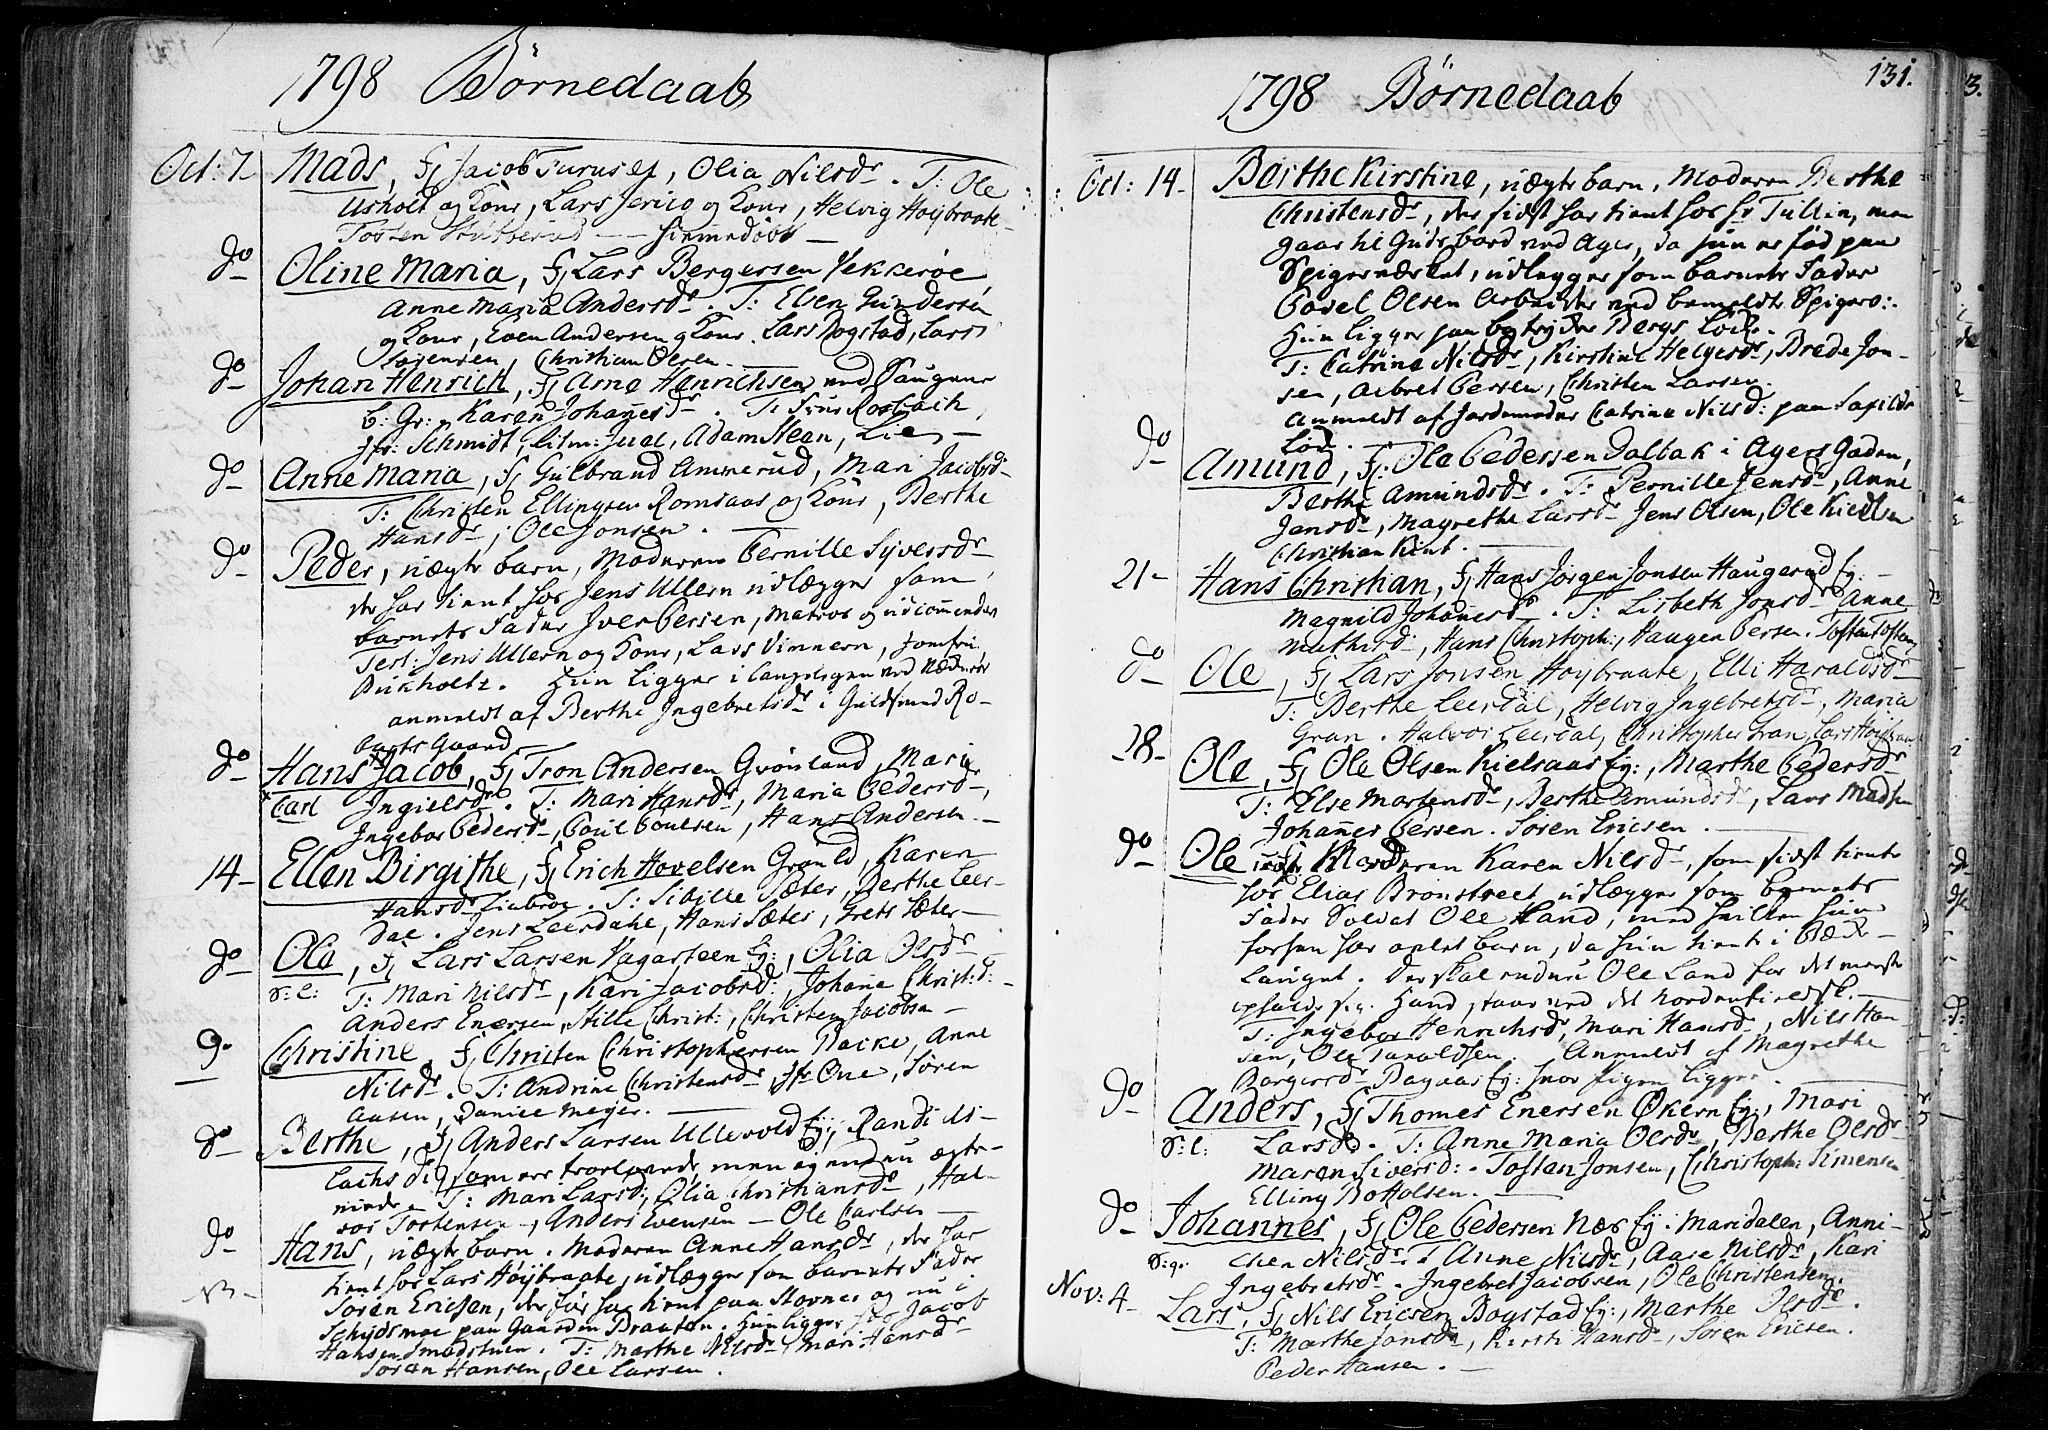 1798 Börnedaab
Oct: 7 Mads, f Jacob Turuset, Olia Nilsdr. T: Ole
Usholt og Kone, Lars Jerico og Kone, Helvig Høybraate
Tosten
do Oline Maria, f Lars Bergersen Vekkeröe,
Anne Maria Andersdr. T: Even Gundersen
og Kone, Even Andersen og Kone. Lars Rogstad, Lars
Sørensen, Christian Olsen
do Johan Henrich, f Arne Henrichsen ved Saugene
Karen Johanesdr. T: Frue Rosbach,
Jfr: Schmidt, Juel, Adam Steen, Lie
do Anne Maria, f Gulbrand Ammerud, Mari Jacobsd
T: Christen Ellingsen Romsaas og Kone, Berthe
Hansdr, Ole Jonsen.
do Peder, uægte barn, Moderen Pernille Syversdr
der har tient hos Jens Ullern udlægger som
barnets Fader Iver Persen, Matros og udcommenderet
Test: Jens Ullern og Kone, Lars Vinnern, Jomfru
Bukholtz. Hun ligger i
anmeldt af Berthe Ingebretsdr i
Gaard
do Hans Jacob, f Tron Andersen Grönland, Mari
Carl Ingielsdr. T: Mari Hansdr, Maria Pedersdr,
Ingebor Pedersdr, Poul Poulsen, Hans Andersen
14 Ellen Birgithe, f Erich Hovelsen, Karen
Hansdr Liabroe. T: Sibille Sæter, Berthe Leer-
dal. Jens Leerdahl, Hans Sæter, Grete Sæter
do Ole, f Lars Larsen Vagasteen Ey:, Olia Olsdr
S: C: T: Mari Nilsdr, Kari Jacobsd:, Johane Christ:d:
Anders Enersen, Stille Christ:, Christen Jacobsen
9. Christine, f Christen Christophersen Bakke, Anne
Nilsdr. T: Andrine Christensdr, Jfr Oue, Sören
Aasen, Daniel Meyer.
do Berthe, f Anders Larsen Ullevold Ey:, Randi Is-
lachsd som ere trolovede, men ej endnu ægte-
viede. T: Mari Larsd:, Olia Christiansdr, Hal-
vor Tostensen, Anders Evensen — Ole Carlsen
do Hans, uægte barn. Moderen Anne Hansdr, der har
tient hos Lars Høybraate, udlægger som barnets Fader
Sören Ericsen, der før har tient paa Stovner og nu i
paa Gaarden Braaten. Hun ligger hos Jacob
Hansen Smedstuen. T: Marthe Nilsdr, Mari Hansdr
Sören Hansen, Ole Larsen.
131.
1798 Börnedaab
Oct: 14 Berthe Kirstine, uægte barn, Moderen Berthe
Christensdr, der sidst har tient hos Hr Tullin, men
gaar til Guds bord ved Ager, da hun er fød paa
Spigerværket, udlægger som barnets Fader
Povel Olsen Arbeider ved bemeldte Spigerv:.
Hun ligger paa Bergs Löcke.
T: Catrine Nilsdr, Kirstine Helgesdr, Brede Jon-
sen, Albret Persen, Christen Larsen.
Anmeldt af Jordemoder Catrine Nilsd: paa
Löcke.
do Amund, f: Ole Pedersen Dalbak i Agers Gaden,
Berthe Amundsdr. T: Pernille Jensdr, Anne
Jensdr, Magrethe Larsdr Jens Olsen, Ole Kielsen
Christian Kint.
21 Hans Christian, f Hans Jörgen Jonsen Haugerud Ey:
Magnild Johanesdr. T: Lisbeth Jonsdr Anne
Mathisd:, Hans Christoph:, Haagen Persen. Tosten Tosten
do Ole, f Lars Jonsen Høybraate, Elli Haraldsdr
T: Berthe Leerdal, Helvig Ingebretsdr, Maria
Gran. Halvor Leerdal, Christopher Gran, Lars Høybraa
28 Ole, f Ole Olsen Kielsaas Ey:, Marthe Pedersdr
T: Else Mortensdr, Berthe Amundsdr, Lars Madsen
Johanes Persen. Sören Ericsen.
do Ole Moderen Karen Nilsdr, som sidst tiente
hos Elias Bronstveet, udlægger som barnets
Fader Soldat Ole Land, med hvilken hun
forhen har aulet barn, da hun tiente i
Lauget. Der skal endnu Ole Land for det meeste
opholde sig
T: Ingebor Henrichsdr, Mari Hansdr, Nils Han-
sen, Ole Taraldsen. Anmeldt af Magrethe
Borgersdr Ey: hvor Pigen ligger.
do Anders, f Thomes Enersen Økern Ey:, Mari
S: C: Larsdr. T: Anne Maria Olsdr, Berthe Olsdr
Maren Siversd:. Tosten Jonsen, Christoph: Simensen
Elling Botolsen.
do Johannes, f Ole Pedersen Nær Ey: i Maridalen, Anni-
chen Nilsdr. T Anne Nilsdr, Aase Nilsdr, Kari
Ingebretsdr. Ingebret Jacobsen, Ole Christensen.
Nov: 4 Lars, f Nils Ericsen Bogstad Ey:, Marthe Olsdr.
T: Marthe Jonsdr, Kirsti Hansdr, Sören Ericsen.
Peder Hansen.